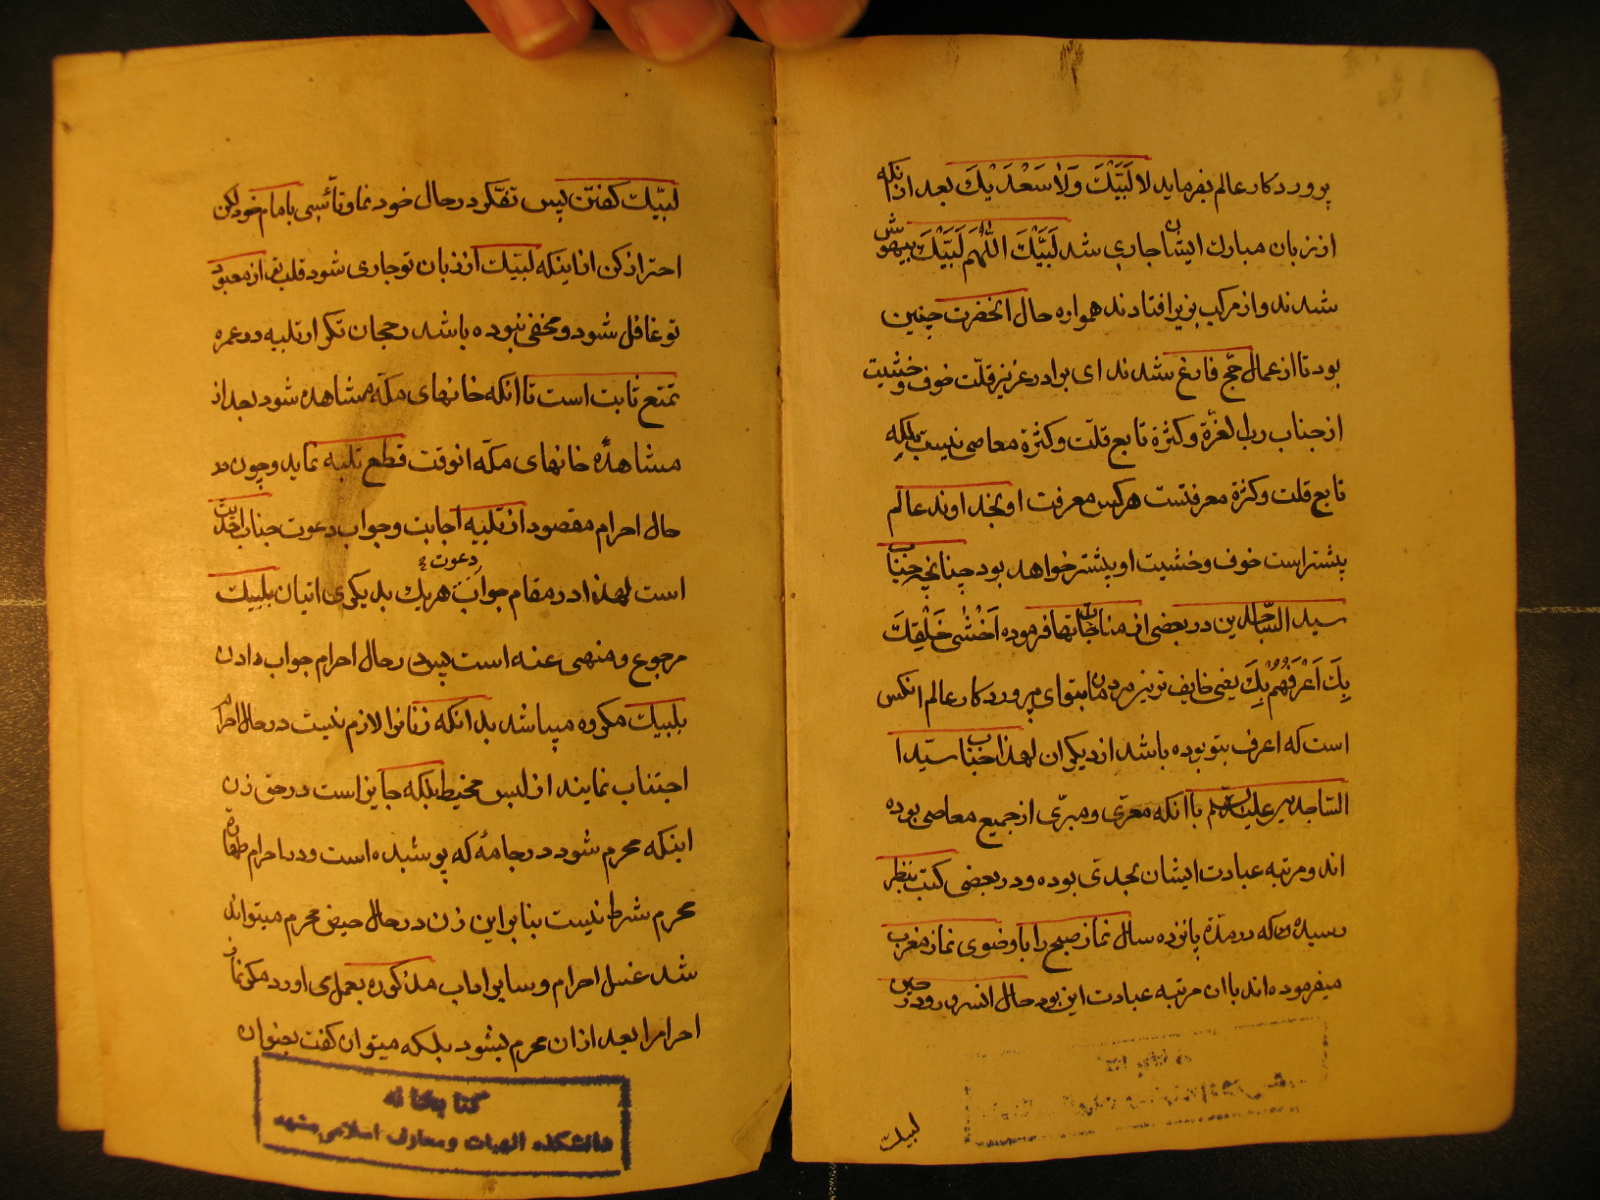 پروردكار عالم بفرمايد لا لَبَّيْكَ وَلا سَعْدَيْكَ بعد ازانكه
از زبان مبارك ايشان جارى شد لَبَّيْكَ اللّهُمَ لَبَّيْكَ بيهوش
شدند و از مركب بزير افتادند همواره حال انحضرت چنين
بود تا از اعمال حج فارغ شدند اى برادر عزيز قلّت خوف و خشيت
از جناب رب العزة و كثرة تابع قلّت و كثرة معاصى نيست بلكه
تابع قلت و كثرة معرفتست هركس معرفت او بخداوند عالم
بيشتر است خوف و خشيت او بيشتر خواهد بود چنانچه جناب
سيد الساجدين در بعضى از مناجاتها فرموده اَخْشى خَلْقِكَ
بِكَ اَعْرَفُهُمْ بِكَ يعنى خايف ترين مردمان بتو اى پروردكار عالم انكس
است كه اعرف بتو بوده باشد از ديكران لهذا جناب سيّد ا
الساجدين عليه السلام با انكه معرّى و مبرّى از جميع معاصى بوده
اند و مرتبه عبادت ايشان بحدى بوده و در بعضى كتب بنظر
رسيده كه در مدّة پانزده سال نماز صبح را با وضوى نماز مغرب
ميفرموده اند با ان مرتبه عبادت اين بود حال انسرور در حين
لبيك
لبّيك كفتن پس تفكّر در حال خود نما و تأسّى بامام خود كن
احتراز كن از اينكه لبّيك از زبان تو جارى شود قلب تو از معبود
تو غافل شود و مخفى نبوده باشد رجحان تكرار تلبيه در عمره
تمتع ثابت است تا انكه خانهاى مكّه مشاهده شود بعد از
مشاهدهٔ خانهاى مكّه انوقت قطع تلبيه نمايد و چون در
حال احرام مقصود از تلبيه اجابت و جواب دعوت جناب احديت
است لهذا در مقام جواب دعوت هريك بديكرى اتيان بلبيك
مرجوع و منهى عنه است پس در حال احرام جواب دادن
بلبيك مكروه ميباشد بدانكه زنانرا لازم نيست در حال احرام
اجتناب نمايند از لبس مخيط بلكه جايز است در حق زن
اينكه محرم شود در جامهٔ كه پوشيده است و در احرام طهارة
محرم شرط نيست بنابراين زن در حال حيض محرم ميتواند
شد غسل احرام و ساير اداب مذكوره بعمل اورد مكر نماز
احرام را بعد از ان محرم بشود بلكه ميتوان كفت بعنوان
كتابخانه
دانشكده الهيات و معارف اسلامى مشهد